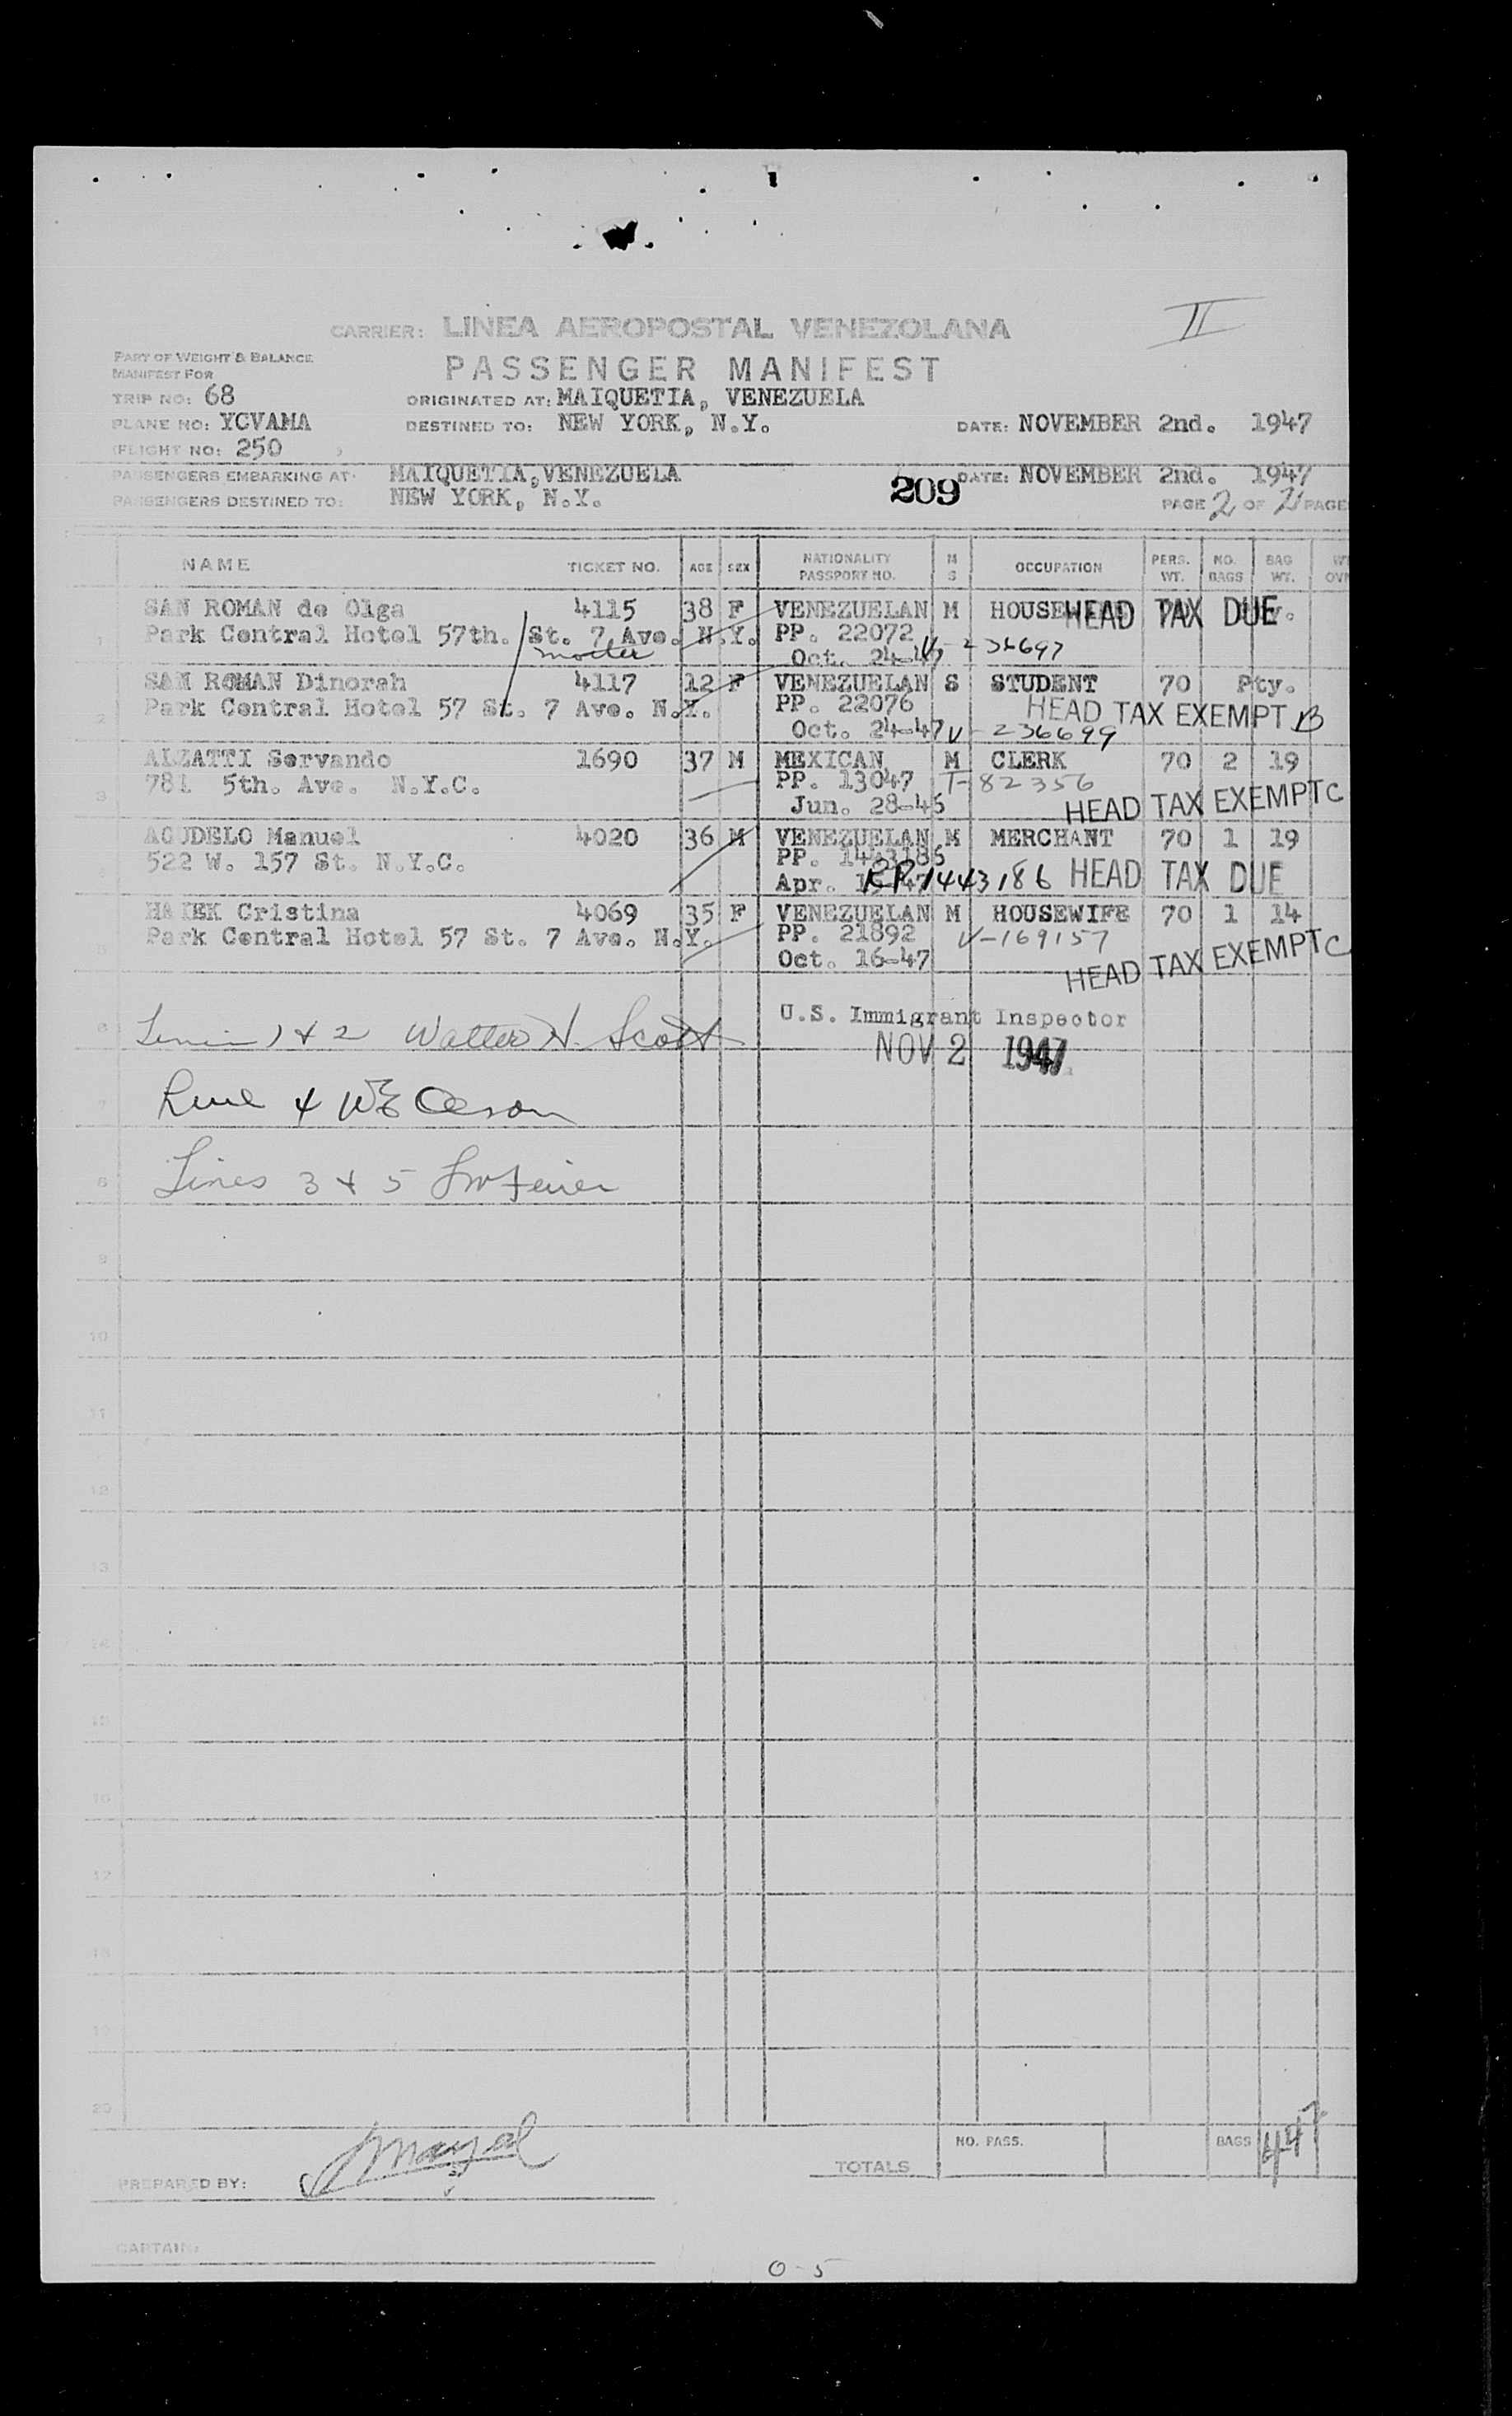 II
CARRIER: LINEA AEROPOSTAL VENEZOLANA
PART OF WEIGHT & BALANCE
MANIFEST FOR
PASSENGER MANIFEST
TRIP NO: 68 ORIGINATED AT: MAIQUETIA, VENEZUELA
PLANE NO: YCVAMA DESTINED TO: NEW YORK, N.Y. DATE: NOVEMBER 2nd. 1947
FLIGHT NO: 250
PASSENGERS EMBARKING AT: MAIQUETIA,VENEZUELA 209 DATE: NOVEMBER 2nd. 1947
PASSENGERS DESTINED TO: NEW YORK, N.Y. PAGE 2 OF 2 PAGE
NAME TICKET NO. AGE SEX NATIONALITY PASSPORT NO. M S OCCUPATION PERS. WT. NO. BAGS BAG WT.
1 SAN ROMAN de Olga 4115 38 F VENEZUELAN M HEAD TAX DUE
Park Central Hotel 57th. St. 7 Ave. N.Y. PP. 22072
Oct. 24-47
2 SAN ROMAN Dinorah 4117 12 F VENEZUELAN S STUDENT 70 Pty.
Park Central Hotel 57 St. 7 Ave. N.Y. PP. 22076 HEAD TAX EXEMPT B
Oct. 24-47 V-236699
3 ALZATTI Servando 1690 37 M MEXICAN M CLERK 70 2 19
781 5th. Ave. N.Y.C. PP. 13047 T-82356
Jun. 28-46 HEAD TAX EXEMPT C
AGUDELO Manuel 4020 36 M VENEZUELAN M MERCHANT 70 1 19
522 W. 157 St. N.Y.C. PP. 1443186
Apr. 1443186 HEAD TAX DUE
5 Cristina 4069 35 F VENEZUELAN M HOUSEWIFE 70 1 14
Park Central Hotel 57 St. 7 Ave. N.Y. PP. 21892 V-169157
Oct. 16-47 HEAD TAX EXEMPT C
U.S. Immigrant Inspector
6 1 & 2 Walter H. Scott
NOV 2 1947
7 Line 4
8 Lines 3 & 5
9
10
11
12
13
14
15
16
17
18
19
20
NO. PASS. BAGS
TOTALS
PREPARED BY:
CAPTAIN:
0-5